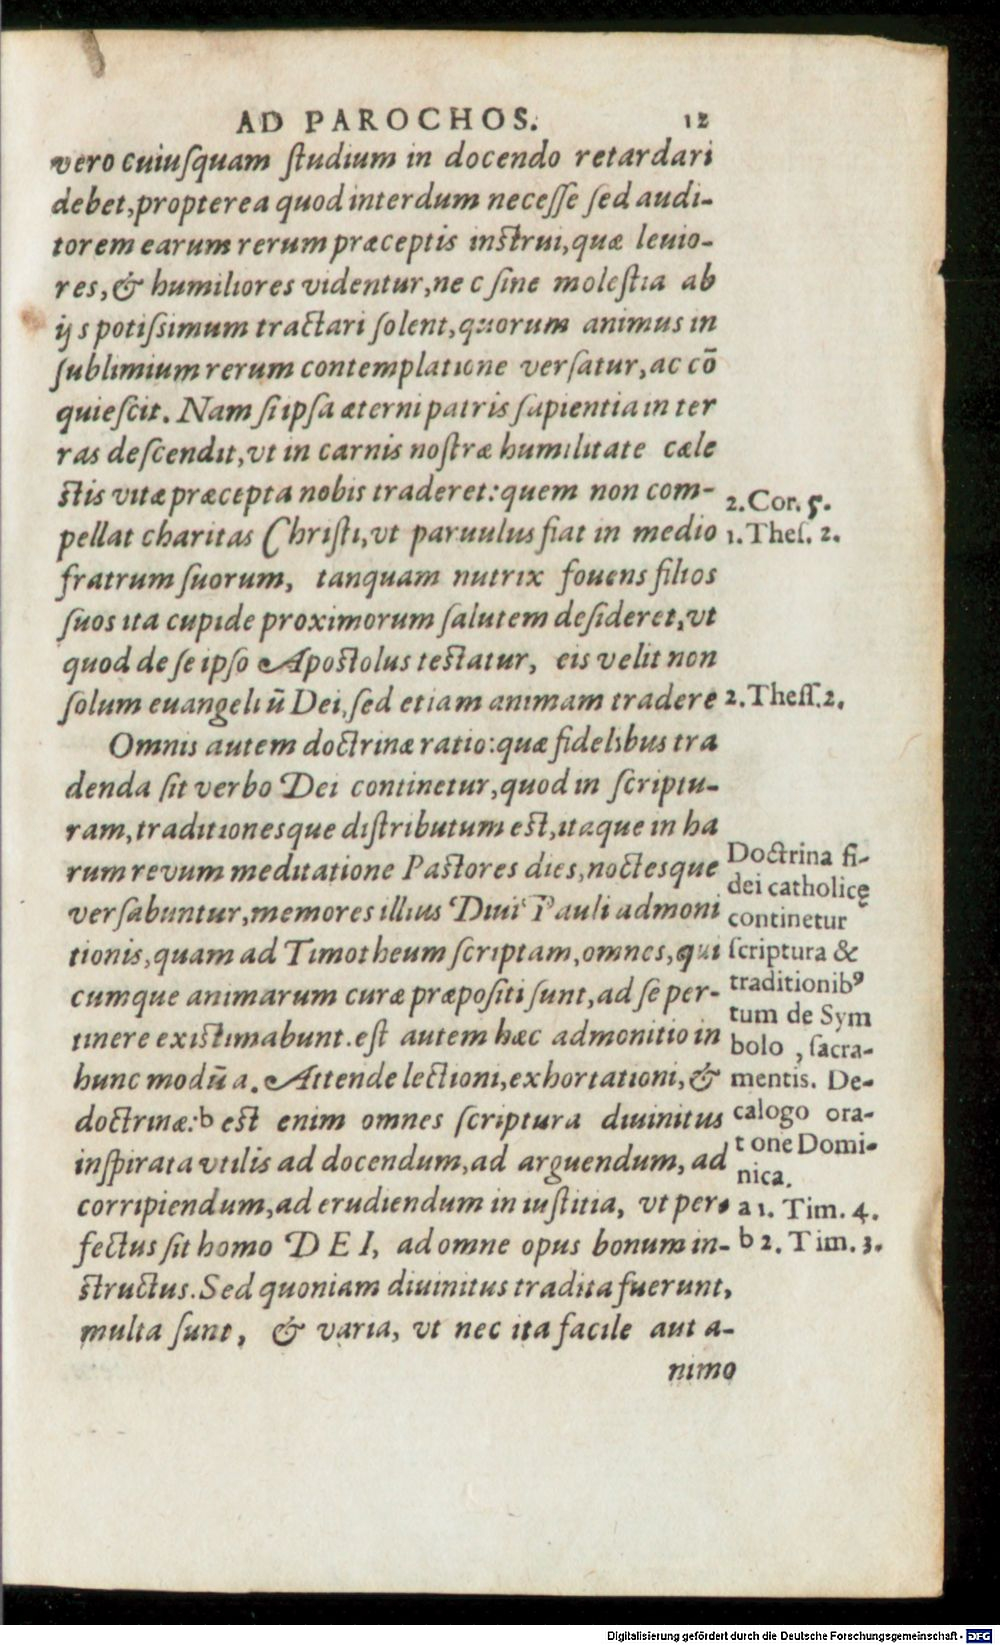 AD PAROCHOS. 12
vero cuiuſquam ſtudium in docendo retardari
debet, propterea quod interdum neceſſe ſed audi-
torem earum rerum præceptis inſtrui, quæ leuio-
res, & humiliores videntur, nec ſine moleſtia ab
ijs potiſsimum tractari ſolent, quorum animus in
ſublimium rerum contemplatione verſatur, ac cō
quieſcit. Nam ſi ipſa æterni patris ſapientia in ter
ras deſcendit, vt in carnis noſtræ humilitate cæle
ſtis vitæ præcepta nobis traderet: quem non com-
pellat charitas Chriſti, vt paruulus fiat in medio
fratrum ſuorum, tanquam nutrix fouens filios
ſuos ita cupide proximorum ſalutem deſideret, vt
quod de ſe ipſo Apoſtolus teſtatur, eis velit non
ſolum euangeliū Dei, ſed etiam animam tradere
Omnis autem doctrinæ ratio: quæ fidelibus tra
denda ſit verbo Dei continetur, quod in ſcriptu-
ram, traditionesque diſtributum eſt, itaque in ha
rum revum meditatione Paſtores dies, noctesque
verſabuntur, memores illius Diui Pauli admoni
tionis, quam ad Timotheum ſcriptam, omnes, qui
cumque animarum curæ præpoſiti ſunt, ad ſe per-
tinere exiſtimabunt. eſt autem hæc admonitio in
hunc modū a. Attende lectioni, exhortationi, &
doctrinæ: b eſt enim omnes ſcriptura diuinitus
inſpirata vtilis ad docendum, ad arguendum, ad
corripiendum, ad erudiendum in iuſtitia, vt per-
fectus ſit homo DEI, ad omne opus bonum in-
ſtructus. Sed quoniam diuinitus tradita fuerunt,
multa ſunt, & varia, vt nec ita facile aut a-
nimo
2. Cor. 5.
1. Theſ. 2.
2. Theſſ. 2.
Doctrina fi-
dei catholicę
continetur
ſcriptura &
traditionibꝰ
tum de Sym
bolo, ſacra-
mentis. De-
calogo ora-
t one Domi-
nica.
a 1. Tim. 4.
b 2. Tim. 3.
Digitalisierung gefördert durch die Deutsche Forschungsgemeinschaft - DFG